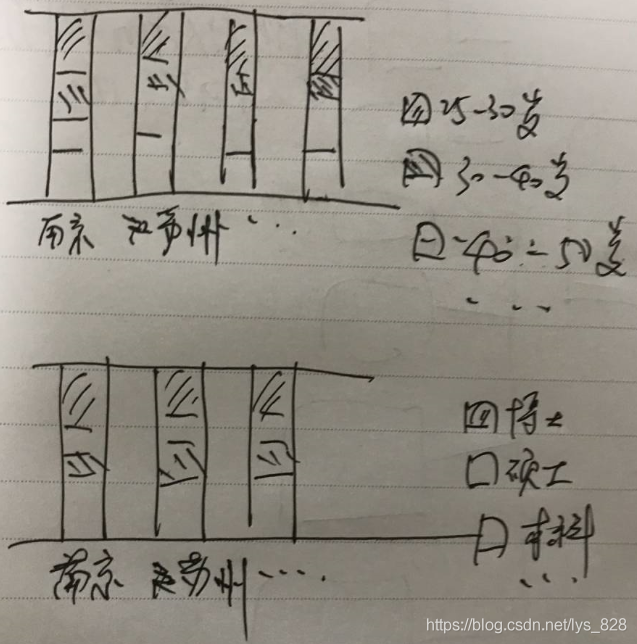 25-30岁
30-40岁
40-50岁
...
南京 苏州 ...
博士
硕士
本科
...
南京 苏州 ....
https://blog.csdn.net/lys_828